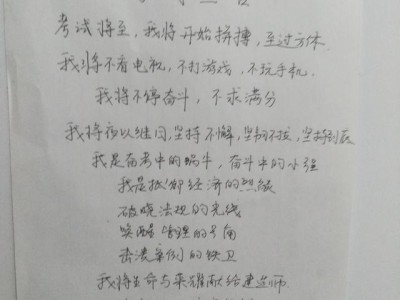 考试将至，我将开始拼搏，至过方休.
我将不看电视，不打游戏，不玩手机.
我将不停奋斗，不求满分
我将夜以继日，坚持不懈，坚韧不拔，坚持到底
我是备考中的蜗牛，奋斗中的小强
我是抵御经济的烈焰
破晓法规的光线
唤醒管理的号角
击溃案例的铁卫
我将生命与荣耀献给建造师